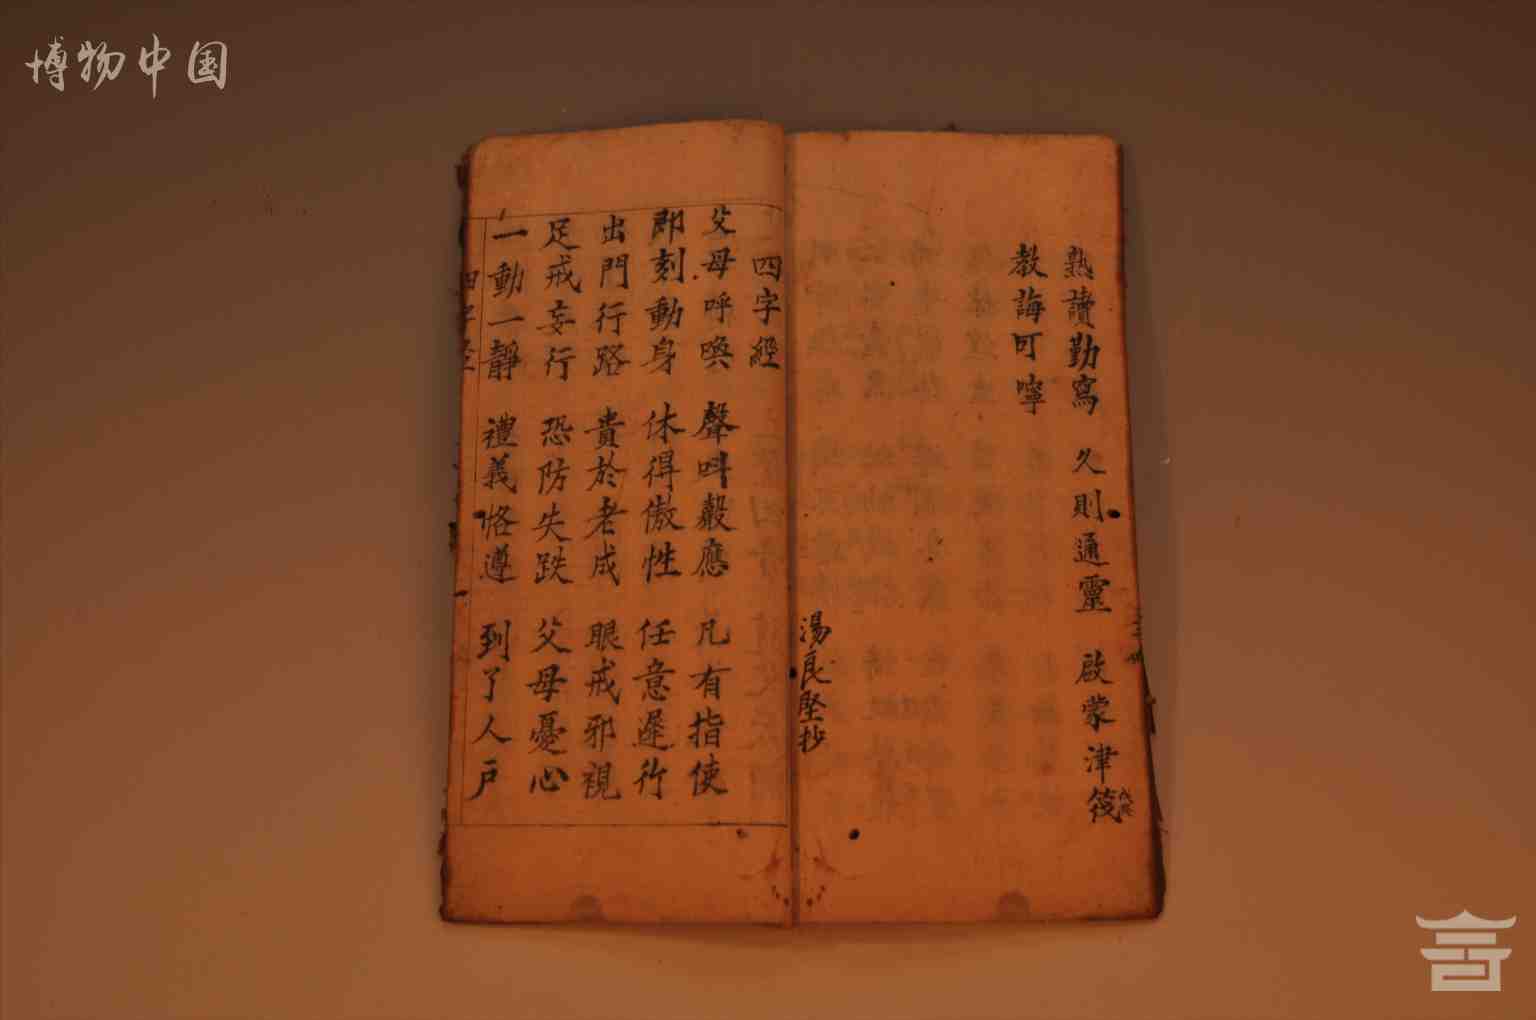 博物中国
熟讀勤寫 久則通靈 啟蒙津筏
教誨叮嚀
湯良堅抄
四字經
父母呼喚 聲呌聲應 凡有指使
即刻動身 休得傲性 任意遲行
出門行路 貴於老成 眼戒邪視
足戒妄行 恐防失跌 父母憂心
一動一靜 禮義恪遵 到了人戶
四字經